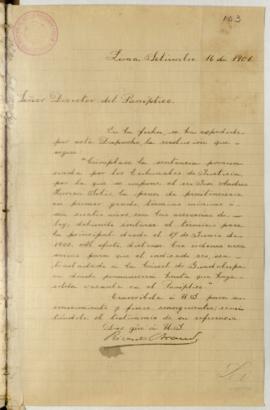 103
Lima, Setiembre 16 de 1901.
Señor Director del Panóptico.
En la fecha, se ha expedido
por este Despacho la resolución que
sigue:
"Cúmplase la sentencia pronun
ciada por los Tribunales de Justicia
por la que se impone al reo José Andrés
la pena de penitenciaría
en primer grado término mínimo ó
sea cuatro años con las accesorias de
ley, debiendo contarse el término para
la principal desde el 17 de Junio de
1900. Al efecto, díctense las órdenes nece
sarias para que el indicado reo, sea
trasladado á la Cárcel de Guadalupe
en donde permanecerá hasta que haya
celda vacante en el Panóptico"
Que trascribo á US. para su
conocimiento y fines consiguientes, remi
tiéndole el testimonio de su referencia
Dios gue á US.
Ricardo